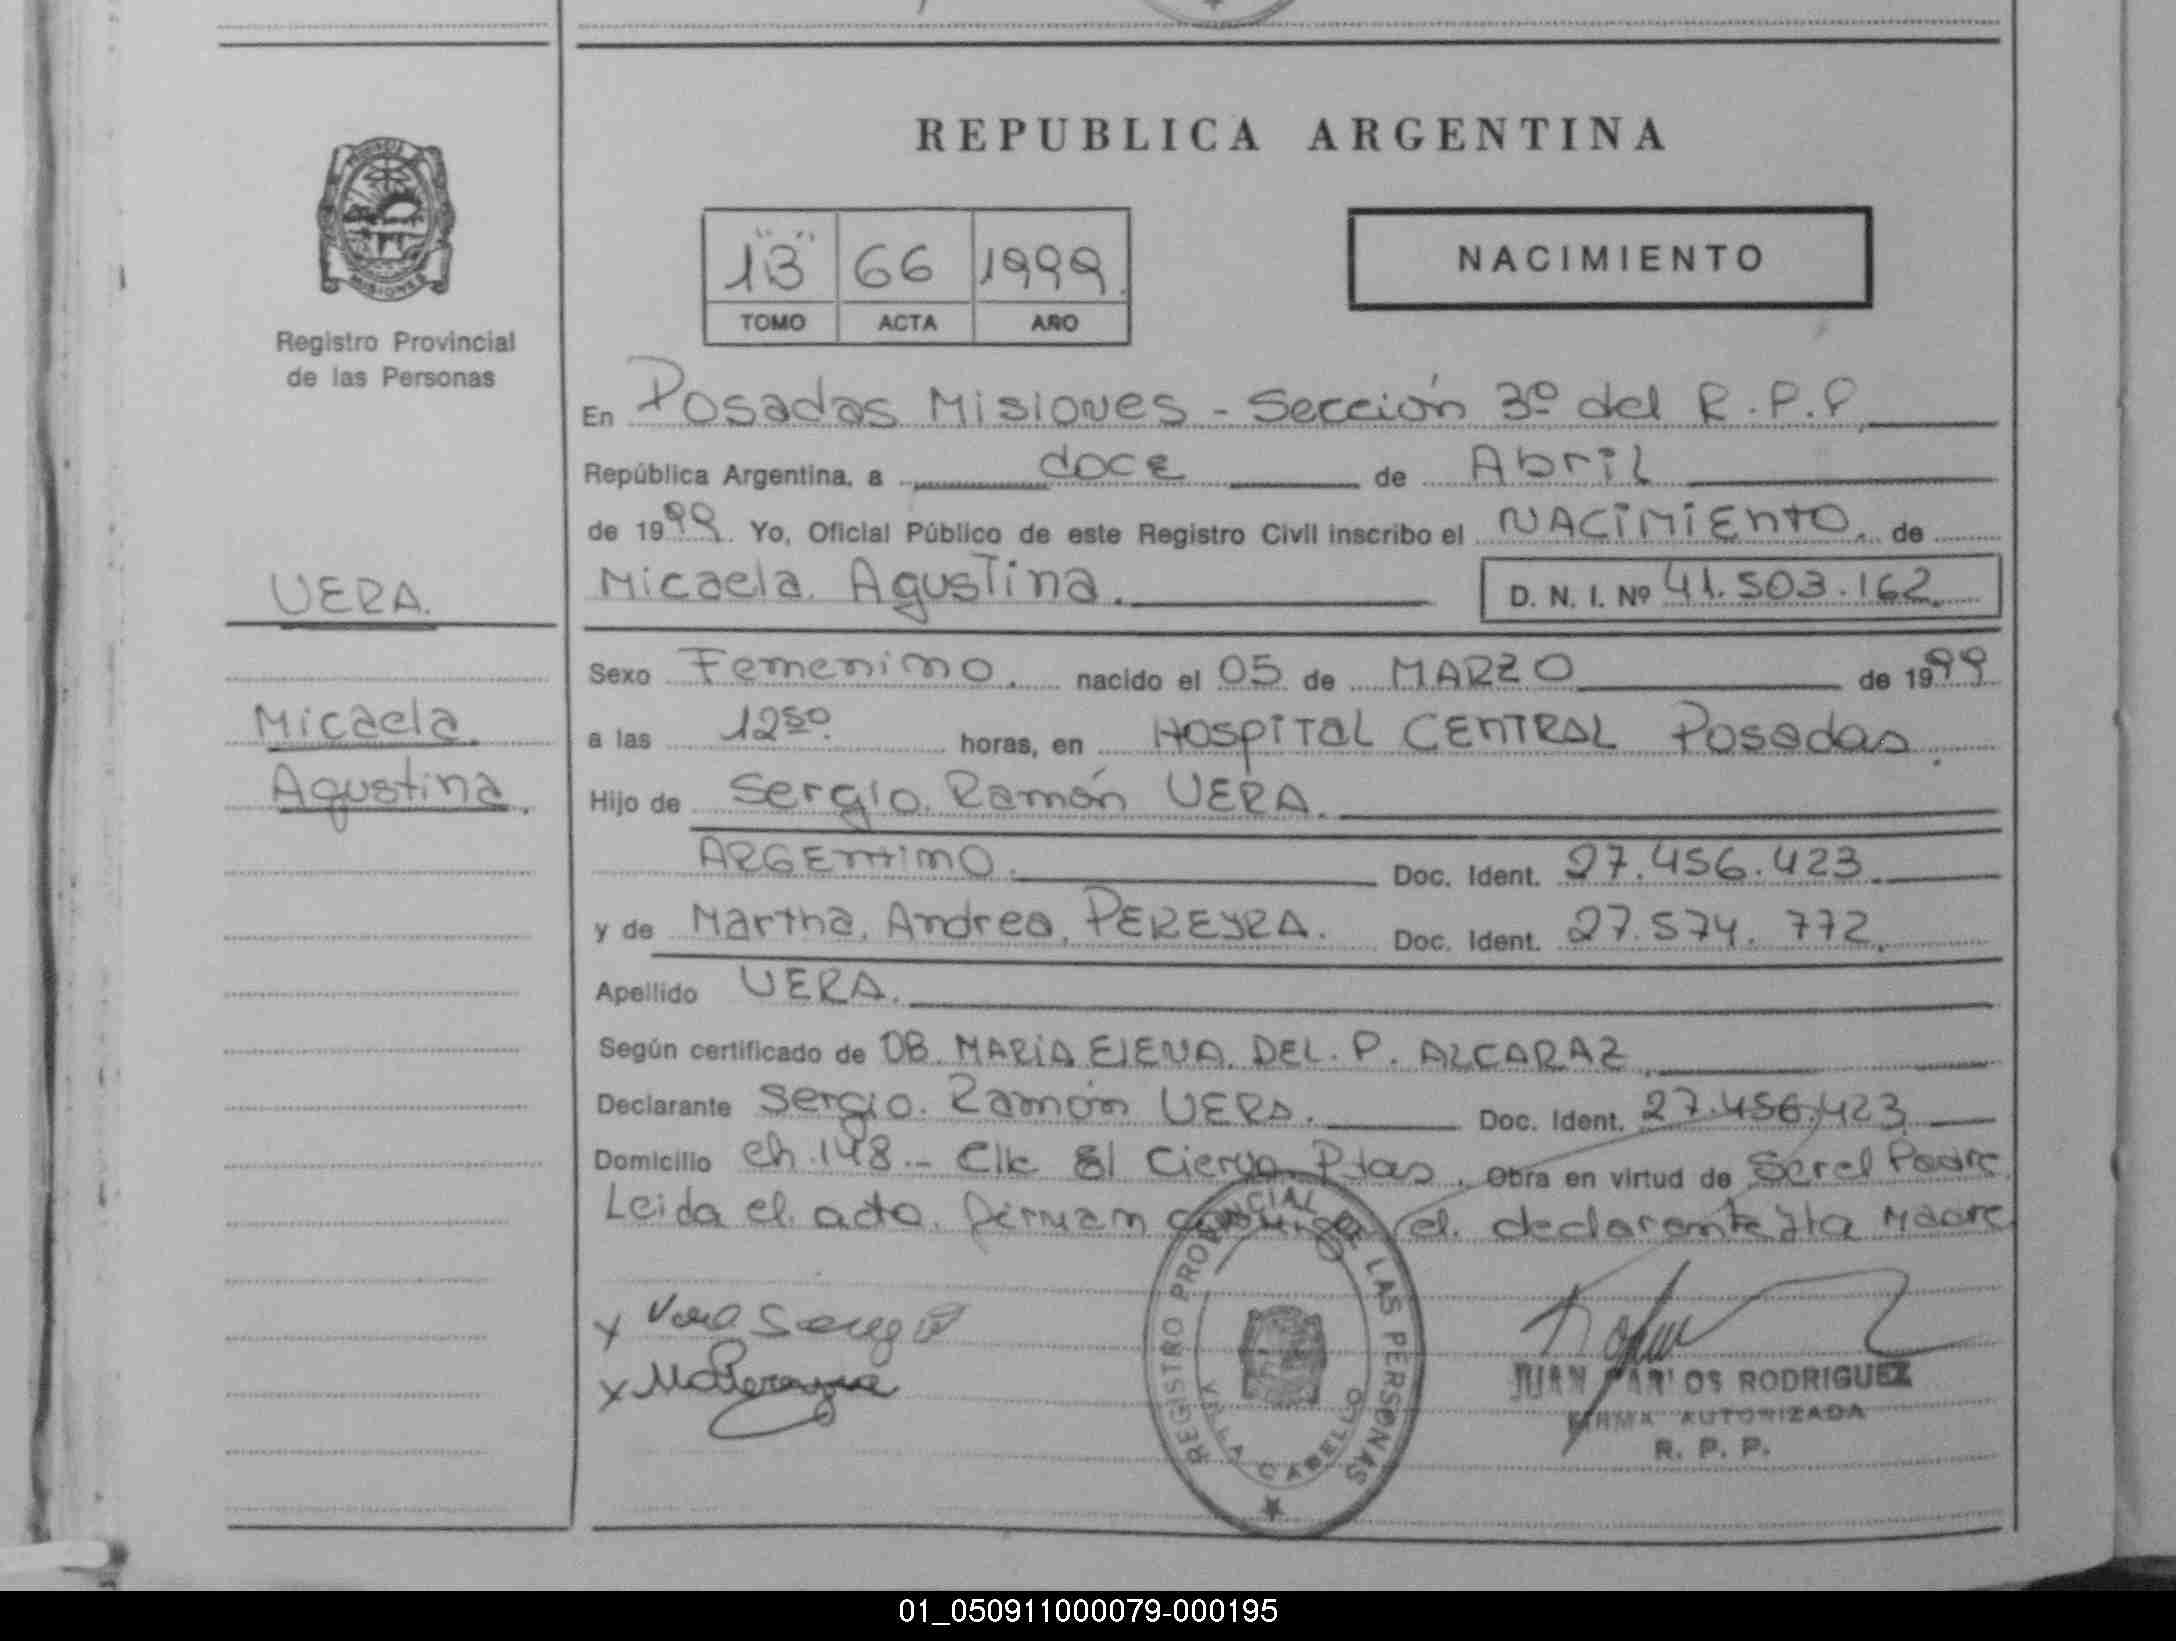 REPUBLICA ARGENTINA
PROVINCIA
MISIONES
Registro Provincial
de las Personas
"13" 66 1999.
TOMO ACTA AÑO
NACIMIENTO
En Posadas Misiones - Sección 3º del R.P.P.
República Argentina, a doce de Abril
de 1999. Yo, Oficial Público de este Registro Civil inscribo el NACIMIENTO. de
Micaela Agustina.
D. N. I. Nº 41.503.162.
VERA.
Micaela.
Agustina.
Sexo Femenino. nacido el 05 de MARZO de 1999
a las 12 50. horas, en HOSPITAL CENTRAL Posadas.
Hijo de Sergio Ramón VERA.
ARGENTINO. Doc. Ident. 27.456.423.
y de Martha Andrea PEREYRA. Doc. Ident. 27.574.772.
Apellido VERA.
Según certificado de OB. MARIA ELENA DEL. P. ALCARAZ
Declarante Sergio Ramón VERA. Doc. Ident. 27.456.423
Domicilio ch.148.- Calle El Ciervo Pdas. Obra en virtud de Ser el Padre
Leida el acta. firman conmigo el declarante y la Madre
x Vera Sergio R
x
REGISTRO PROVINCIAL DE LAS PERSONAS
VILLA CABELLO
JUAN CARLOS RODRIGUEZ
FIRMA AUTORIZADA
R. P. P.
01_050911000079-000195